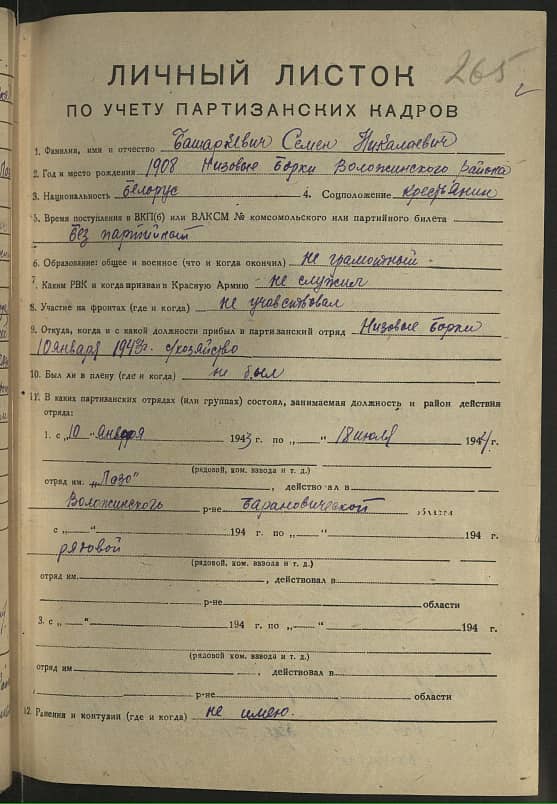 265
ЛИЧНЫЙ ЛИСТОК
ПО УЧЕТУ ПАРТИЗАНСКИХ КАДРОВ
1. Фамилия, имя и отчество Башаркевич Семен Николаевич
2. Год и место рождения 1908 Низовые Борки Воложинского района
3. Национальность белорус 4. Соцположение крестьянин
5. Время поступления в ВКП(б) или ВЛКСМ № комсомольского или партийного билета
Без партийный
6. Образование: общее и военное (что и когда окончил) не грамотный
7. Каким РВК и когда призван в Красную Армию не служил
8. Участие на фронтах (где и когда) не учавствовал
9. Откуда, когда и с какой должности прибыл в партизанский отряд Низовые Борки
10 января 1943г. с/хозяйство
10. Был ли в плену (где и когда) не был
11. В каких партизанских отрядах (или группах) состоял, занимаемая должность и район действия
отряда:
1. с „10" января 1943 г. по „ " 18 июля 1944 г.
(рядовой, ком. взвода и т. д.)
отряд им. „Лазо", действовал в
Воложинского р-не Барановической области
с „ " 194 г. по „ " 194 г.
рядовой
(рядовой, ком. взвода и т. д.)
отряд им. , действовал в
р-не области
3. с „ " 194 г. по „ " 194 г.
(рядовой ком. взвода и т. д.)
отряд им , действовал в
р-не области
12. Ранения и контузии (где и когда) не имею.